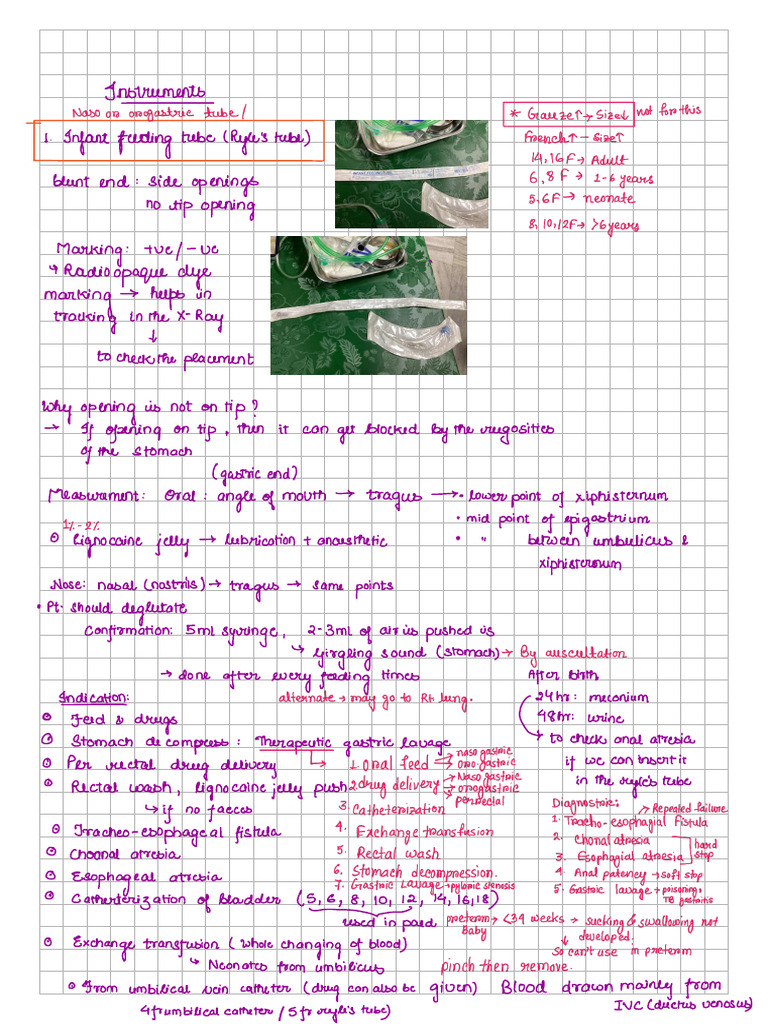 Instruments
Naso or orogastric tube/
1. Infant feeding tube (Ryle's tube)
* Gauze↑→ Size↓ not for this
French↑ — Size↑
14, 16F → Adult
6, 8 F → 1-6 years
5, 6F → neonate
8, 10, 12F → >6 years
blunt end : side openings
no tip opening
Marking: +ve/-ve
↳ Radioopaque dye
marking → helps in
tracking in the X-Ray
↓
to check the placement
Why opening is not on tip?
→ If opening on tip, then it can get blocked by the rugosities
of the stomach
(gastric end)
Measurement: Oral : angle of mouth → tragus → • lower point of xiphisternum
• mid point of epigastrium
• " between umbilicus &
xiphisternum
1%-2%
⊙ Lignocaine jelly → lubrication + anaesthetic
Nose: nasal (nostrils) → tragus → same points
• Pt. should deglutate
Confirmation: 5ml syringe, 2-3ml of air is pushed is
↳ Girgling sound (stomach) → By auscultation
→ done after every feeding times
alternate → may go to Rt lung.
After Birth
24hr: meconium
48hr: urine
→ to check anal atresia
if we can insert it
in the ryle's tube
Indication:
⊙ Feed & drugs
⊙ Stomach decompress : Therapeutic gastric lavage
⊙ Per rectal drug delivery
⊙ Rectal wash, lignocaine jelly push
↳ if no faeces
⊙ Tracheo-esophageal fistula
⊙ Choanal atresia
⊙ Esophageal atresia
⊙ Catheterization of bladder (5, 6, 8, 10, 12, 14, 16, 18)
used in paed.
1. Oral feed
naso gastric
oro-gastric
2. drug delivery
Nasogastric
orogastric
per rectal
3. Catheterization
4. Exchange transfusion
5. Rectal wash
6. Stomach decompression.
7. Gastric Lavage → pyloric stenosis
Diagnostic:
→ Repeated failure
1. Tracho-esophagial Fistula
2. Chonal atresia
3. Esophagial atresia
hard stop
4. Anal patency → soft stop
5. Gastric lavage → poisoning,
TB gastritis
preterm baby → <34 weeks → sucking & swallowing not
developed.
↓
So can't use in preterm
⊙ Exchange transfusion (whole changing of blood)
↳ Neonates from umbilicus
pinch then remove.
⊙ From umbilical vein catheter (drug can also be given) Blood drawn mainly from
4 fr umbilical catheter / 5 fr ryle's tube)
IVC (ductus venosus)